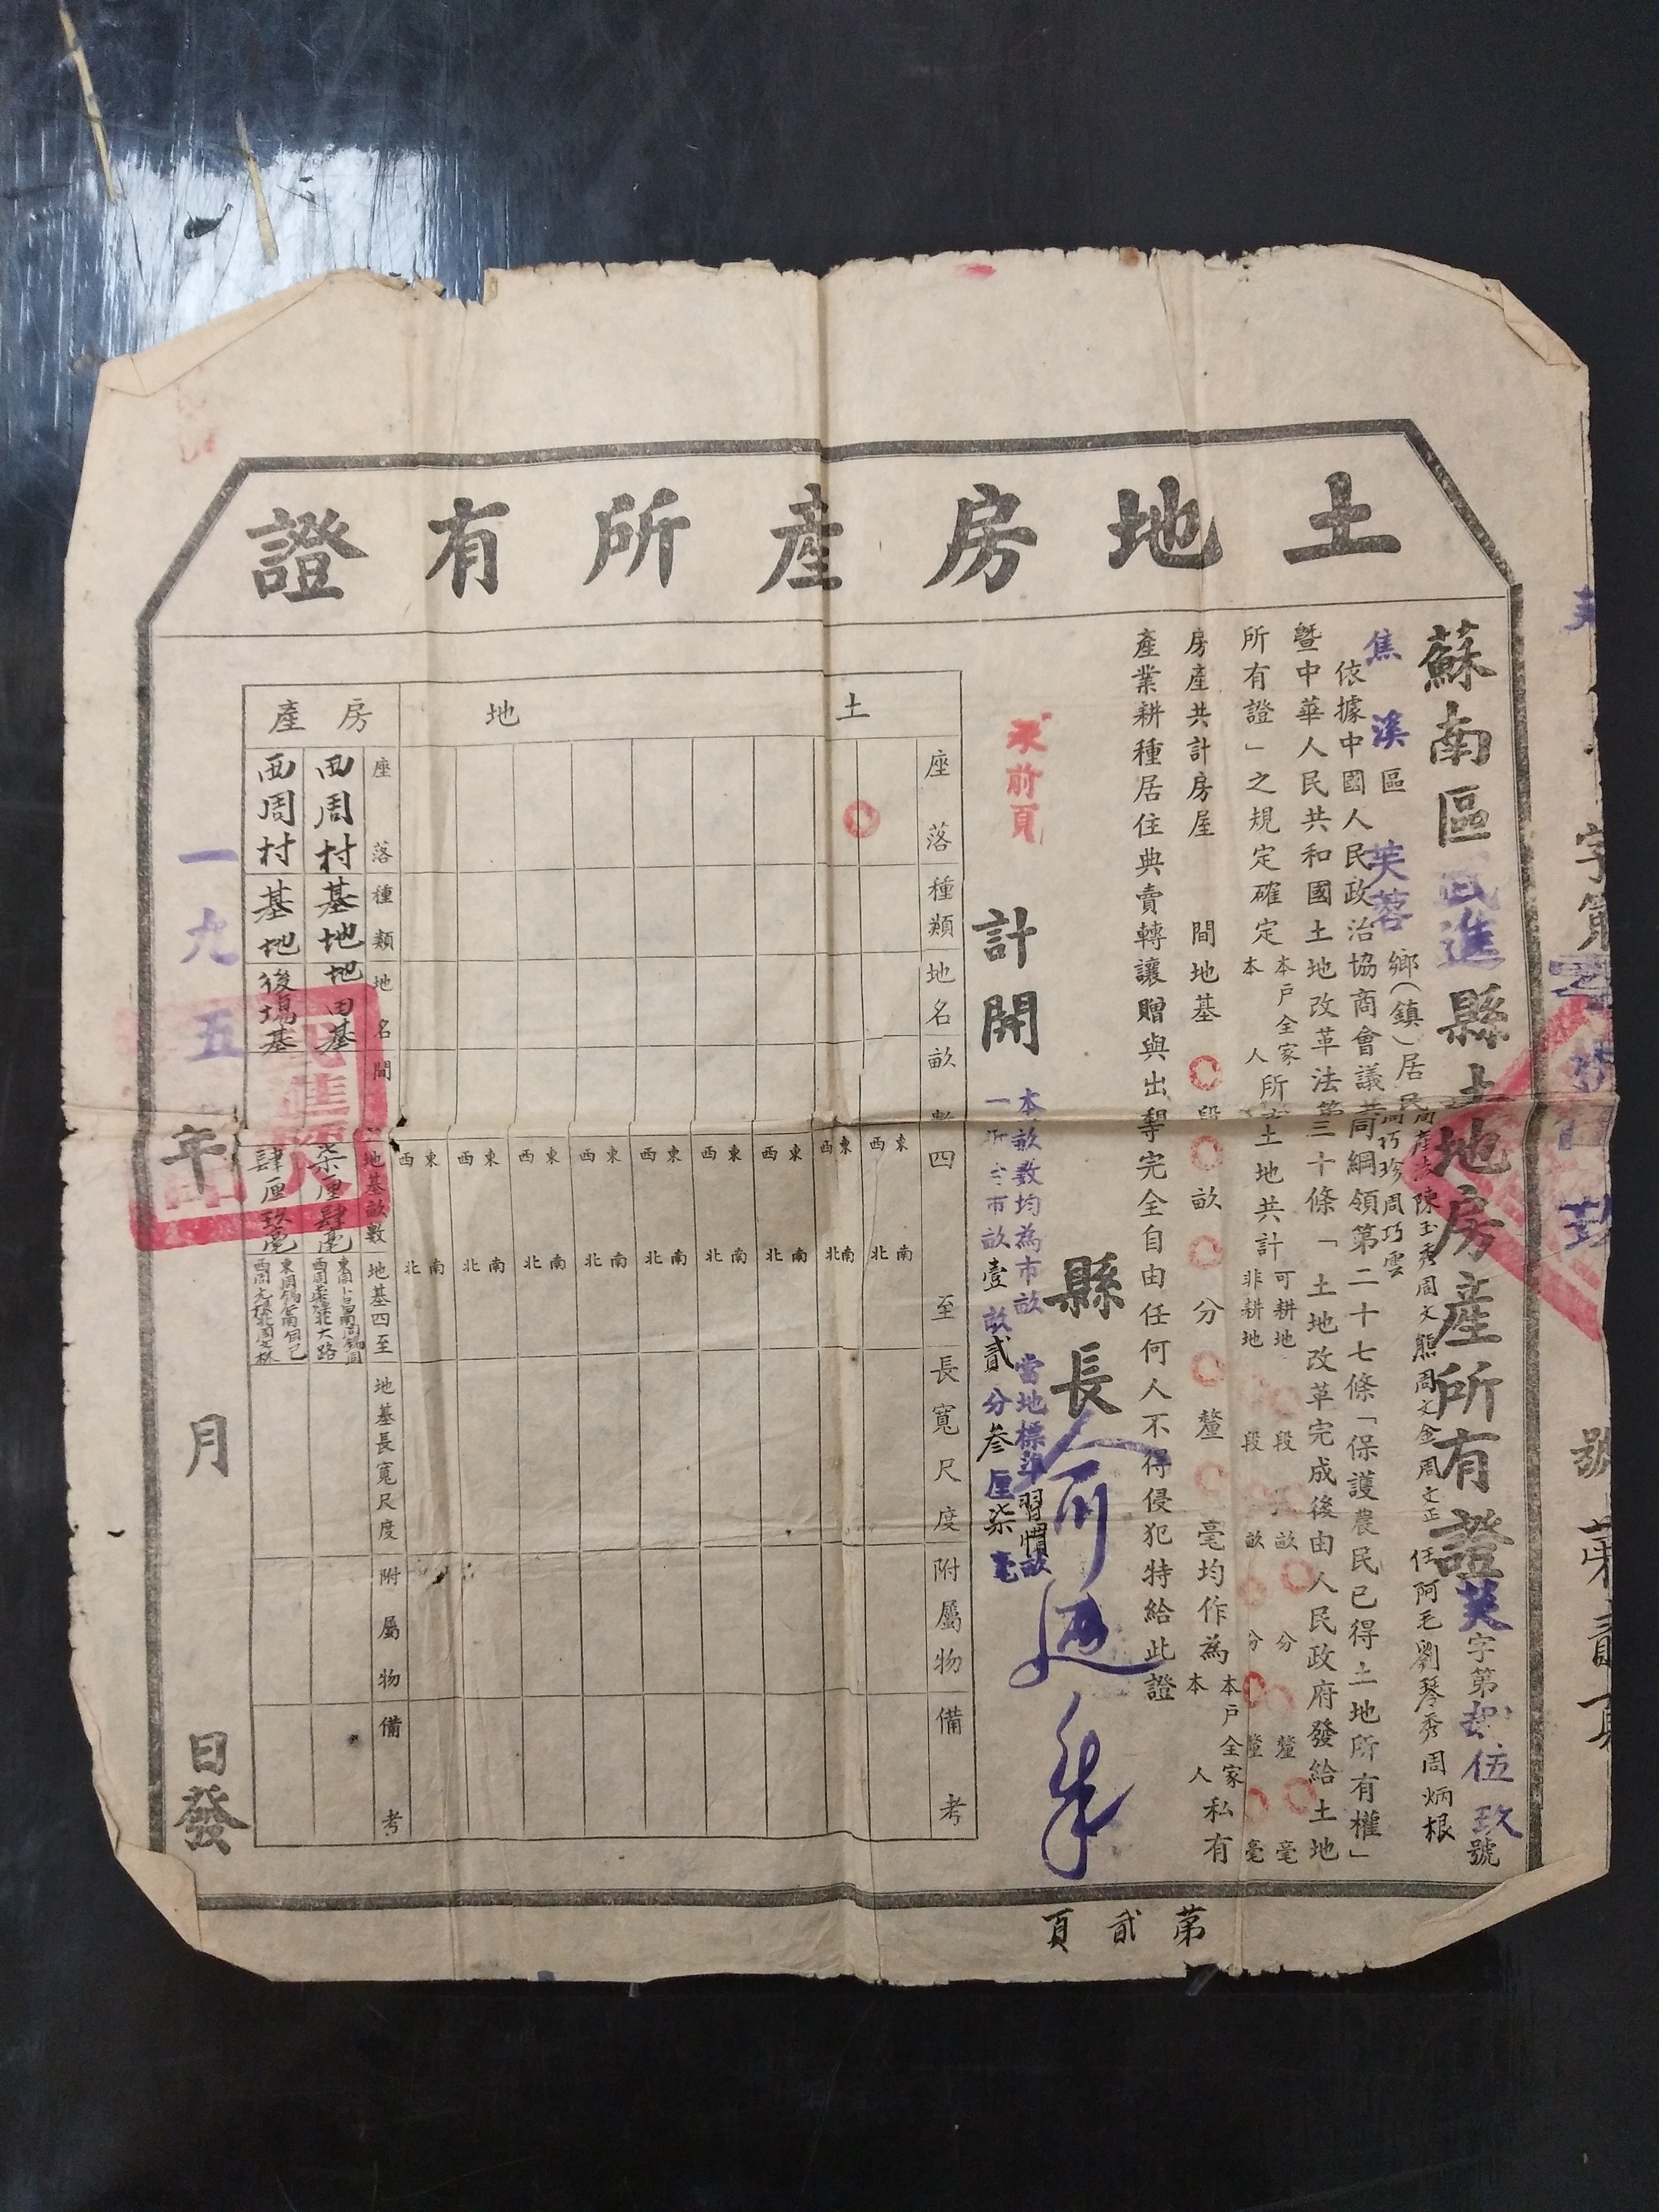 土地房產所有證
蘇南區武進縣土地房產所有證芙字第 伍玖號
焦溪區芙蓉鄉(鎮)居民
陳玉秀周文熊周文金周文正任阿毛劉琴秀周炳根
周巧珍周巧雲
依據中國人民政治協商會議共同綱領第二十七條「保護農民已得土地所有權」
暨中華人民共和國土地改革法第三十條「土地改革完成後由人民政府發給土地
所有證」之規定確定本戶全家本人所有土地共計可耕地 段 畝 分 釐 毫非耕地 段 畝 分 釐 毫
房產共計房屋 間地基 段 畝 分 釐 毫均作為本戶全家本人私有
產業耕種居住典賣轉讓贈與出租等完全自由任何人不得侵犯特給此證
縣長
承前頁
計開
本畝數均為市畝 當地標準習慣畝
市畝壹畝貳分叄厘柒毫
土地
座落
種類
地名
畝數
四至
東 西 南 北
長寬尺度
附屬物
備考
房產
座落
種類
地名
間
地基畝數
地基四至
地基長寬尺度
附屬物
備考
西周村
基地
田基
柒厘肆毫
西周村
基地
後場基
肆厘玖毫
一九五 年 月 日發
第貳頁
字第
號